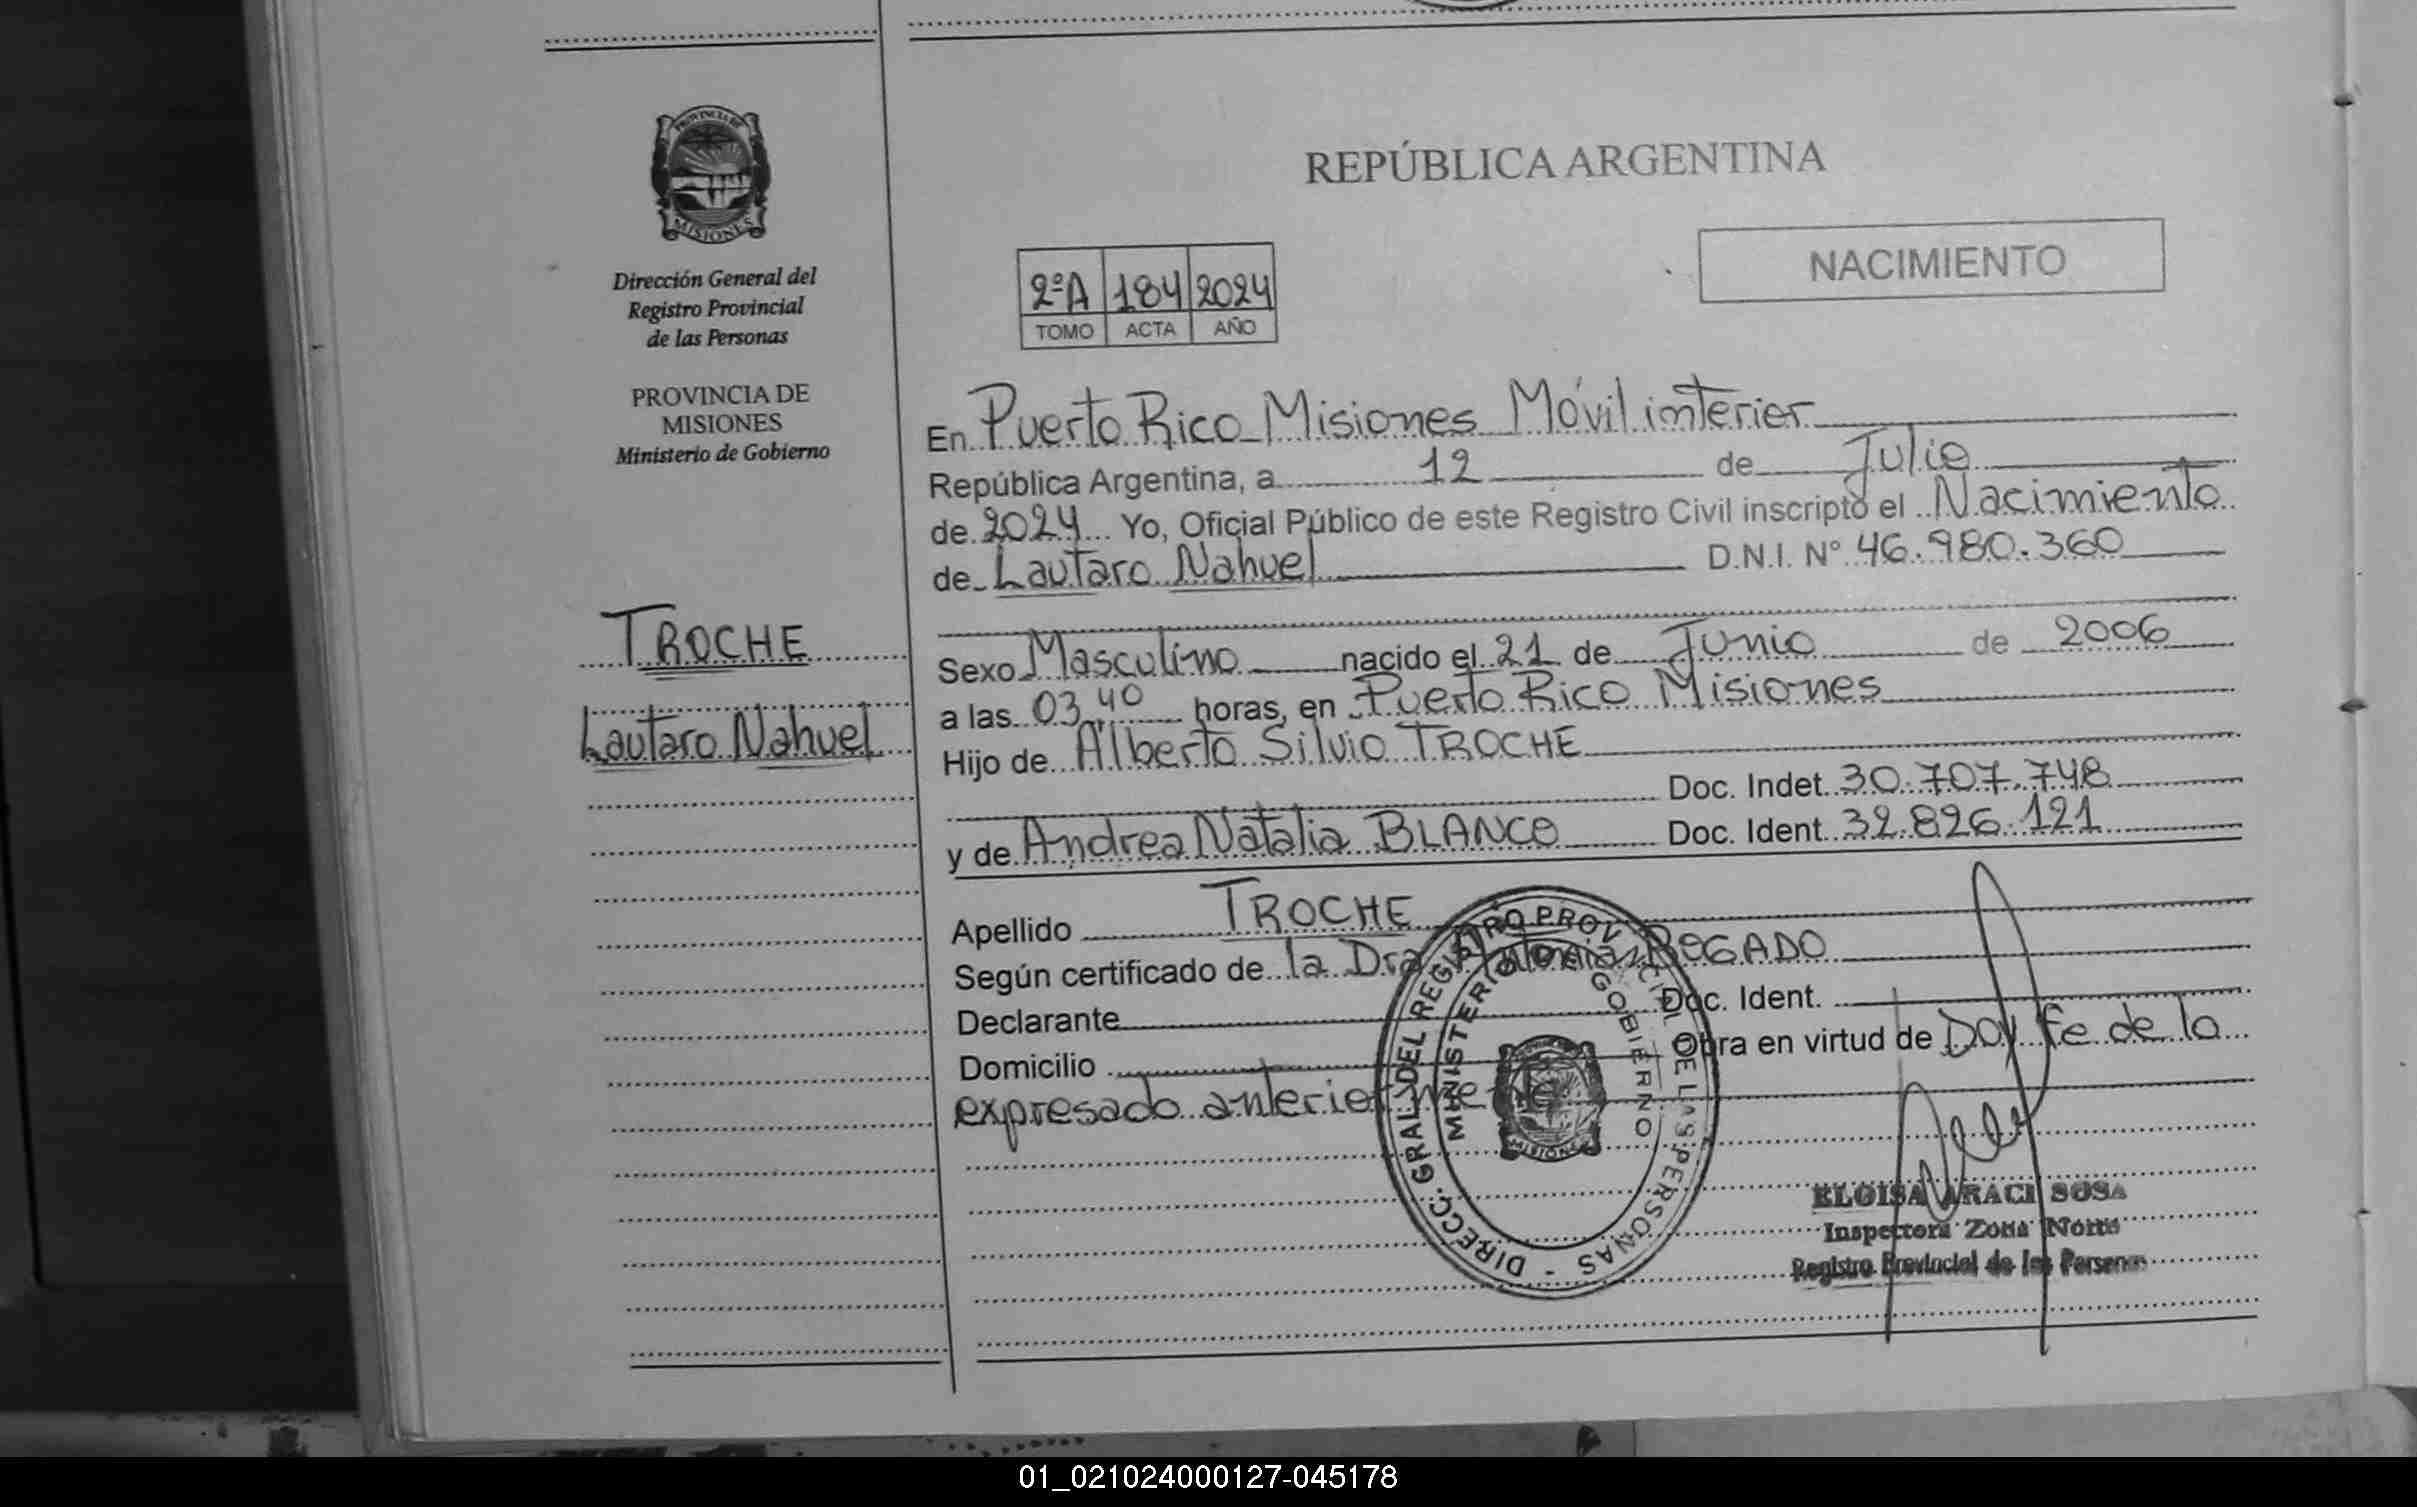 PROVINCIA DE
MISIONES
Dirección General del
Registro Provincial
de las Personas
PROVINCIA DE
MISIONES
Ministerio de Gobierno
TROCHE
Lautaro Nahuel
REPÚBLICA ARGENTINA
NACIMIENTO
2ºA 184 2024
TOMO ACTA AÑO
En Puerto Rico Misiones Móvil interior
República Argentina, a 12 de Julio
de 2024 Yo, Oficial Público de este Registro Civil inscripto el Nacimiento
de Lautaro Nahuel D.N.I. Nº 46.980.360
Sexo Masculino nacido el 21 de Junio de 2006
a las 03,40 horas, en Puerto Rico Misiones
Hijo de Alberto Silvio TROCHE
Doc. Indet. 30.707.748
y de Andrea Natalia BLANCO Doc. Ident. 32.826.121
Apellido TROCHE
Según certificado de la Dra Antonia ROGADO
Declarante Doc. Ident.
Domicilio Obra en virtud de Doy fe de lo
expresado anteriormente
DIRECC. GRAL DEL REGISTRO PROVINCIAL DE LAS PERSONAS -
MINISTERIO DE GOBIERNO
MISIONES
ELOISA ARACI SOSA
Inspectora Zona Norte
Registro Provincial de las Personas
01_021024000127-045178